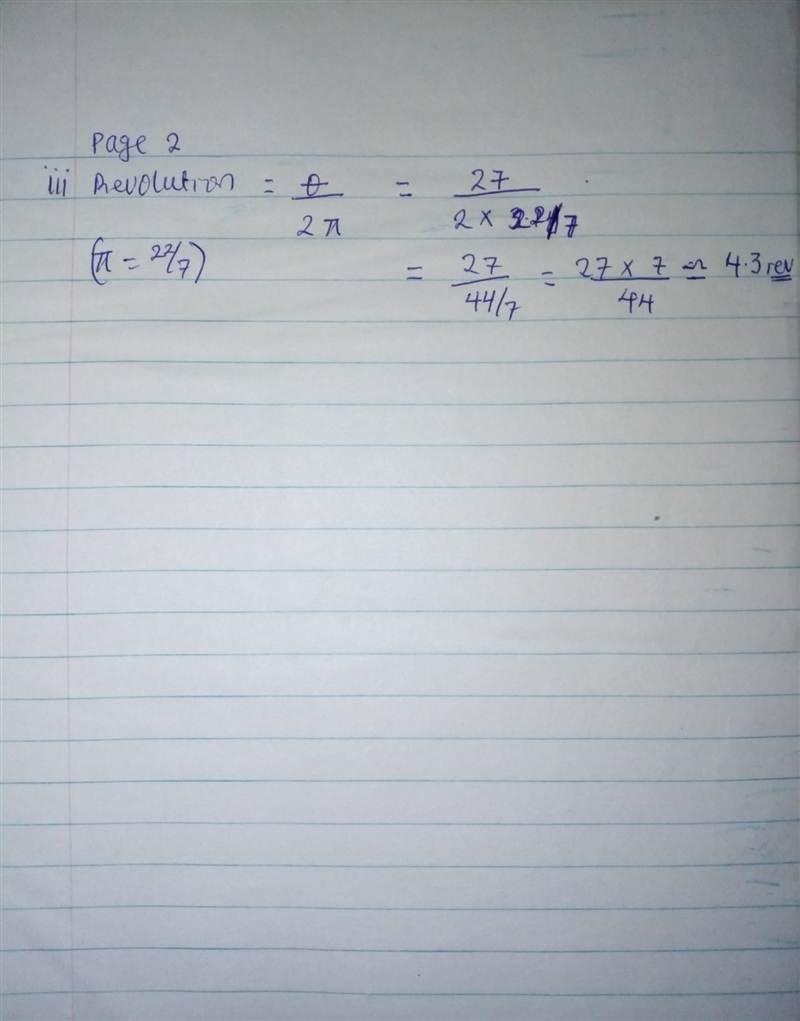 Page 2
iii Revolution = θ / 2π = 27 / 2 × 22/7
(π = 22/7) = 27 / 44/7 = 27 × 7 / 44 ≃ 4.3 rev